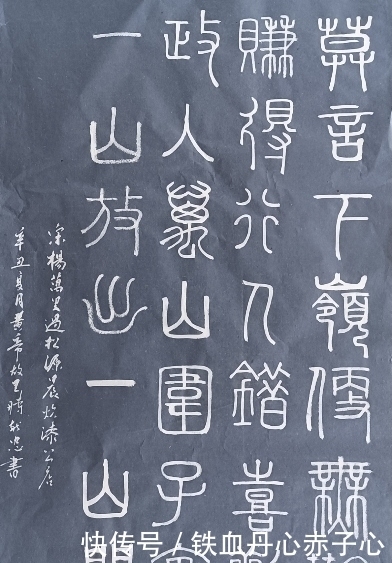 莫言下嶺便無
賺得行人錯喜
政入萬山圍子
一山放出一山
宋楊萬里過松源晨炊漆公店
辛丑夏月黄帝故里書
快传号/铁血丹心赤子心